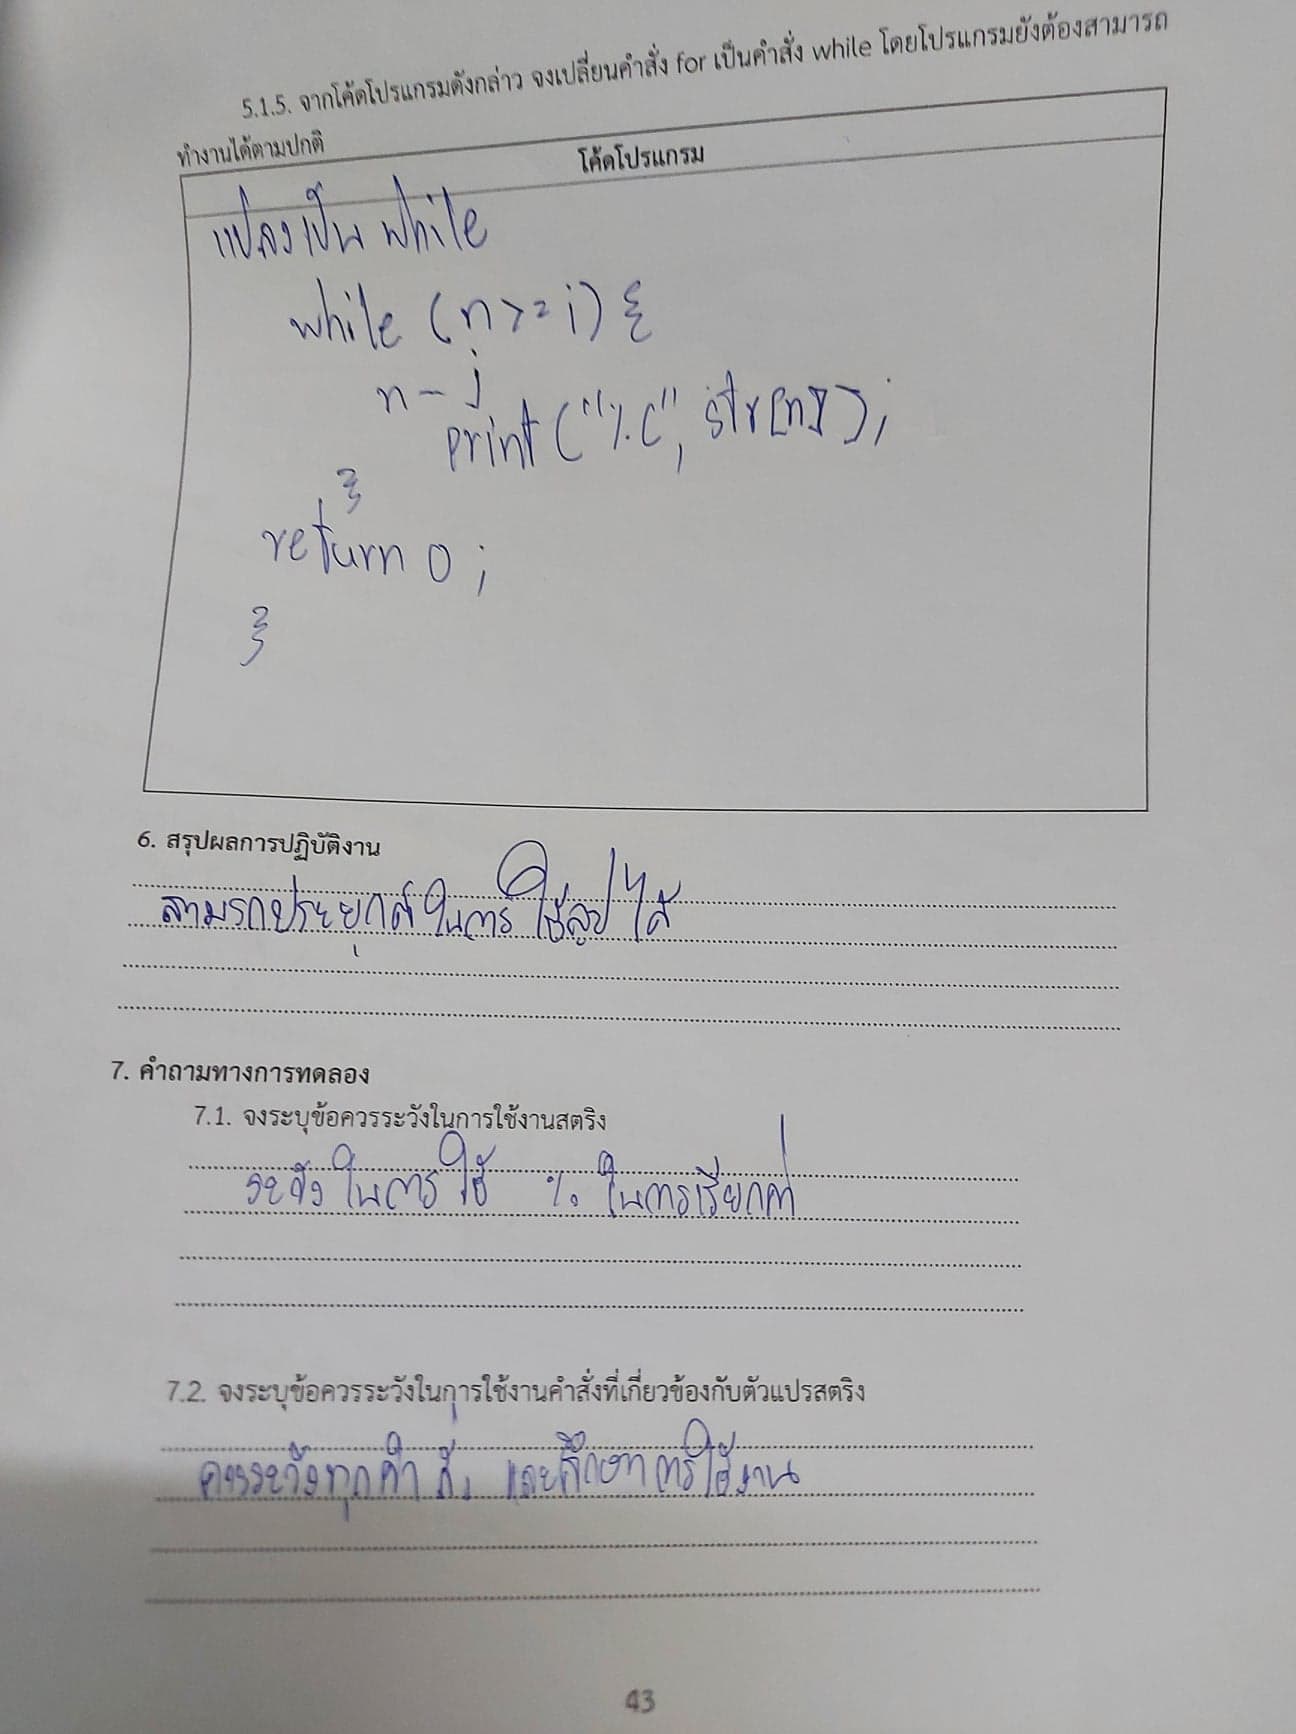 5.1.5. จากโค้ดโปรแกรมดังกล่าว จงเปลี่ยนคำสั่ง for เป็นคำสั่ง while โดยโปรแกรมยังต้องสามารถ
ทำงานได้ตามปกติ
โค้ดโปรแกรม
แปลงเป็น while
while (n >= i) {
n - j
print ("%c", str[n]);
}
return 0 ;
}
6. สรุปผลการปฏิบัติงาน
สามรถประยุกต์ในการใช้ลูป ได้
7. คำถามทางการทดลอง
7.1. จงระบุข้อควรระวังในการใช้งานสตริง
ระวังในการใช้ % ในการเรียกค่า
7.2. จงระบุข้อควรระวังในการใช้งานคำสั่งที่เกี่ยวข้องกับตัวแปรสตริง
ควรระวังทุกคำสั่ง และศึกษาการใช้งาน
43